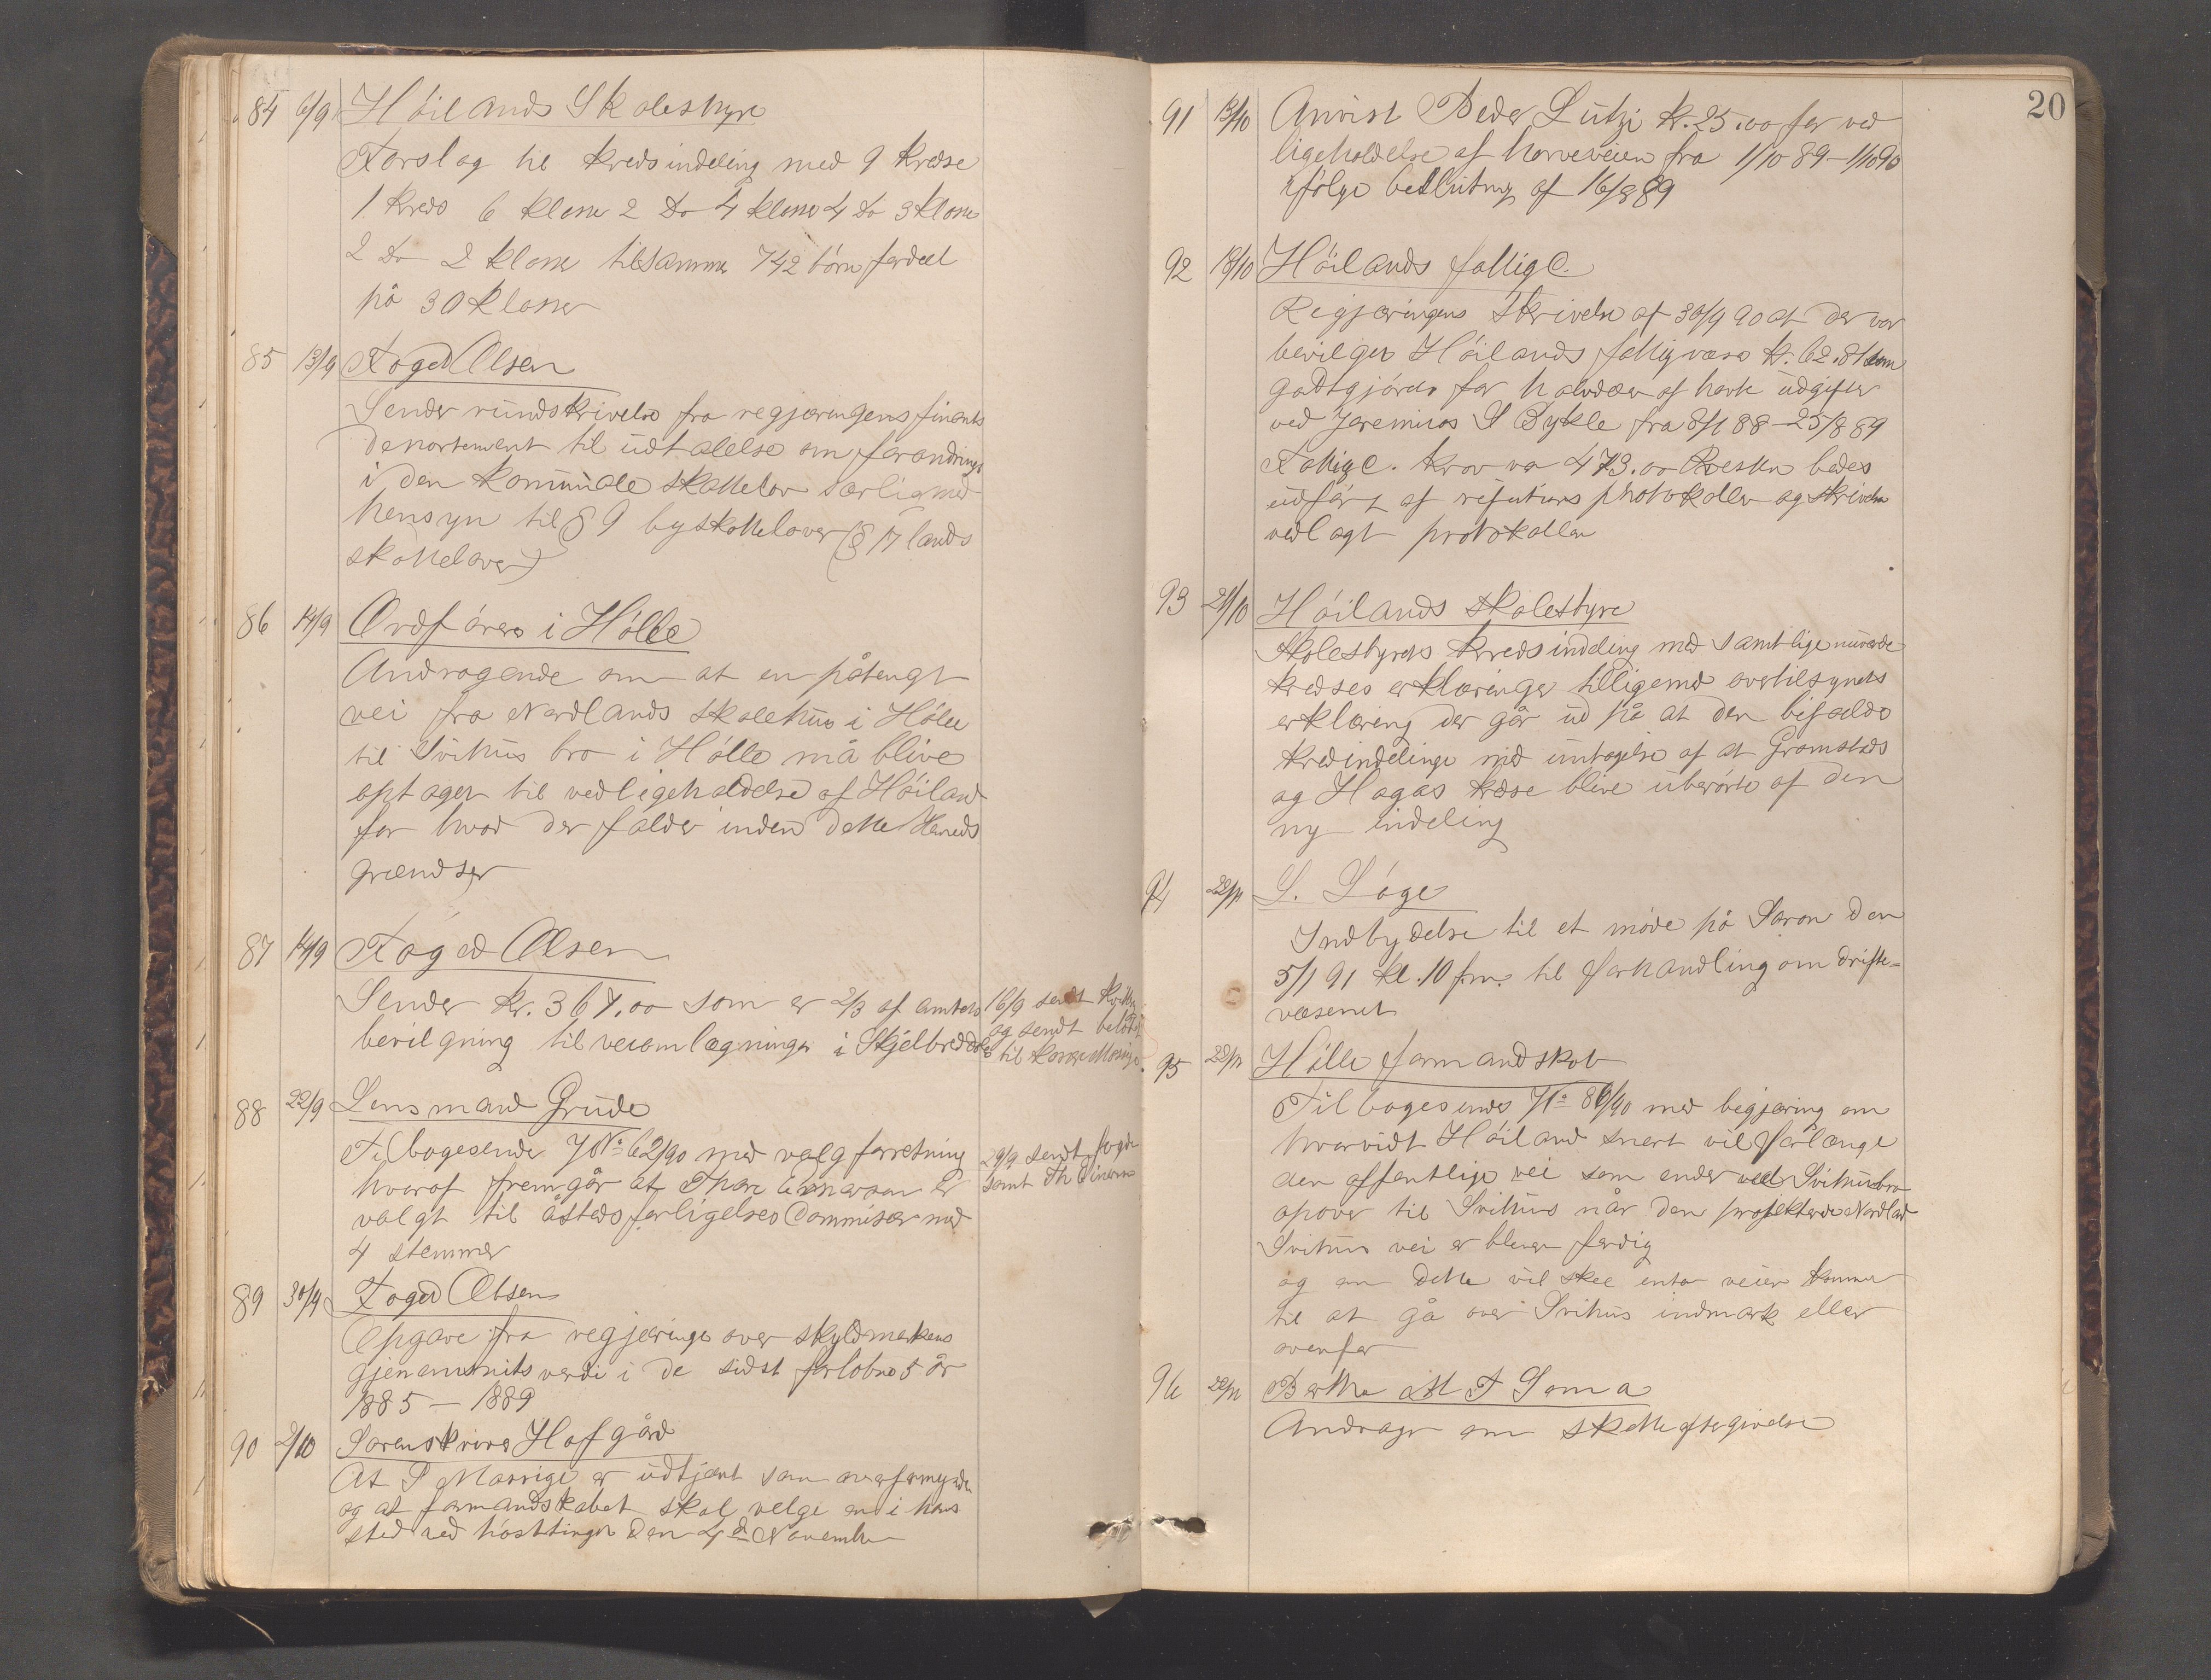 84 6/9 Höilands Skolestyre
Forslag til kredsindeling med 9 kredse
1 kreds 6 klasser 2 do 4 klasser 4 do 3 klasser
2 do 2 klasser tilsammen 742 börn fordeel
på 30 klasser
85 13/9 Foged Olsen
Sender rundskrivelse fra regjeringens finants
departement til udtalelse om forandringer
i den komunale skattelov særlig med
hensyn til § 9 byskatteloven (§ 17 lands
skatteloven)
86 14/9 Ordförer i Hölle
Andragende om at en påtengt
vei fra Nordlands skolehus i Hölle
til Svihus bro i Hölle må blive
optagen til vedligeholdelse af Höiland
for hvad der falder inden dette Hereds
grændser
87 14/9 Foged Olsen
Sender kr. 367.00 som er 2/3 af amtets
bevilgning til veiomlægninger i Skjelbreddale
16/9 sendt kvitering
og sendt belöbet
til kasse Mossige
88 22/9 Lensmand Grude
Tilbagesender J No 62/90 med valgforretning
hvoraf fremgår at Thore Einersen er
valgt til åstedsforligelses Commisær med
4 stemmer
29/9 sendt foged
samt Th Einersen
89 30/9 Foged Olsen
Opgave fra regjeringen over skyldmarkens
gjenemsnitsverdi i de sidst forlöbne 5 år
1885 – 1889
90 2/10 Sorenskriver Hofgård
At S Mossige er udtjent som overformynder
og at formandskabet skal velge en i hans
sted ved hösttinget den 4de November
20
91 13/10 Anvist Peder Lutzi kr. 25.00 for ved
ligeholdelse af horveveien fra 1/10 89 – 1/10 90
ifölge beslutning af 16/8 89
92 18/10 Höilands fattigC.
Regjeringens skrivelse af 30/9 90 at der var
bevilget Höilands fattigvæsen kr. 62.81 som
godtgjörelse for halvdelen af havte udgifter
ved Jeremias S Bykle fra 8/1 88 – 25/8 89
FattigC. krav var 473.00 Resten bedes
udfört af refutions photokollen og skrivelse
vedlagt protokollen
93 21/10 Höilands skolestyre
Skolestyrets kredsindeling med samtlige nuverende
kredses erklæringer tilligemed overtilsynets
erklæring der går ud på at den bifaldes
kredindelinge med untagelse af at Gramstads
og Hogas kredse blive uberörte af den
ny indeling
94 22/11 S. Löge
Indbydelse til et möde på Saron den
5/1 91 kl. 10 f.m. til forhandling om drifte-
væsenet
95 22/11 Hölle formandskab
Tilbagesendes J No 86/90 med begjæring om
hvorvidt Höiland snart vil forlænge
den offentlige vei som ender ved Svihusbro
opover til Svihus når den projekterede Nordland
Svihus vei er bleven ferdig
og om dette vil skee entor veien kommer
til at gå over Svihus indmark eller
ovenfor
96 22/11 Berthe M T Soma
Andrager om skatteeftergivelse